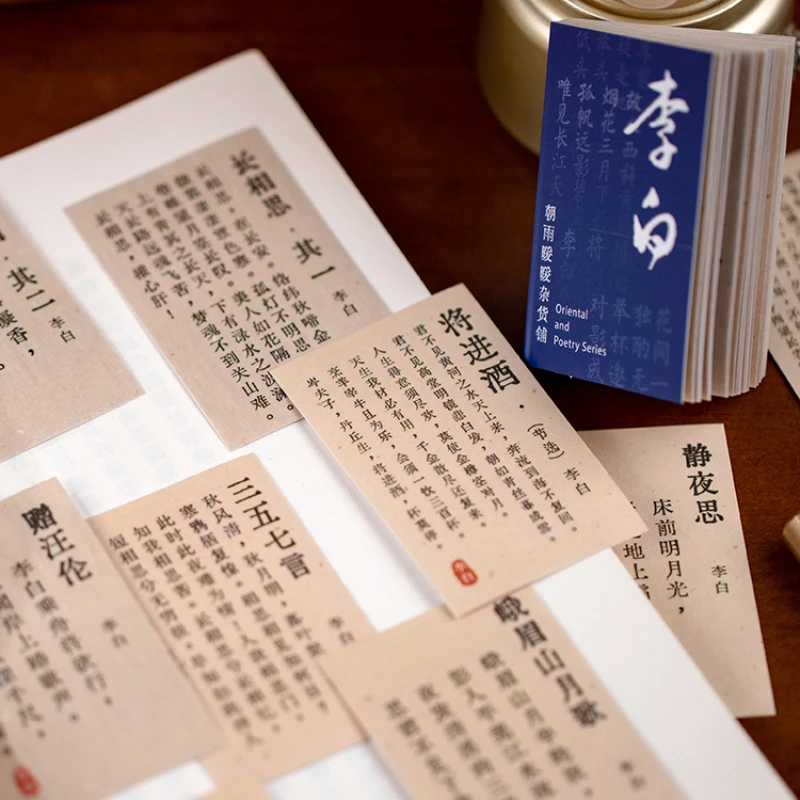 李白
朝雨暧暧杂货铺
Oriental
and
Poetry Series
唯见长江天
孤帆远影
烟花三月下
花间一
独酌无
举杯邀
对影成
长相思·其一
李白
长相思,在长安。络纬秋啼金
微霜凄凄簟色寒。孤灯不明思
卷帷望月空长叹。美人如花隔
上有青冥之长天,下有渌水之波澜。
天长路远魂飞苦,梦魂不到关山难。
长相思,摧心肝!
其二
李白
香,
将进酒·(节选)
李白
君不见黄河之水天上来,奔流到海不复回。
君不见高堂明镜悲白发,朝如青丝暮成雪。
人生得意须尽欢,莫使金樽空对月。
天生我材必有用,千金散尽还复来。
烹羊宰牛且为乐,会须一饮三百杯。
岑夫子,丹丘生,将进酒,杯莫停。
李白
静夜思
李白
床前明月光,
地上
三五七言
李
秋风清,秋月明,落叶聚
寒鸦栖复惊。相思相见知何日?
此时此夜难为情!入我相思门,
知我相思苦。长相思兮长相忆,
短相思兮无穷极。早知如此绊人
赠汪伦
李白
李白乘舟将欲行,
岸上踏歌声。
峨眉山月歌
李白
峨眉山月半轮秋,
影入平羌江水流
夜发清溪向三
思君不见下